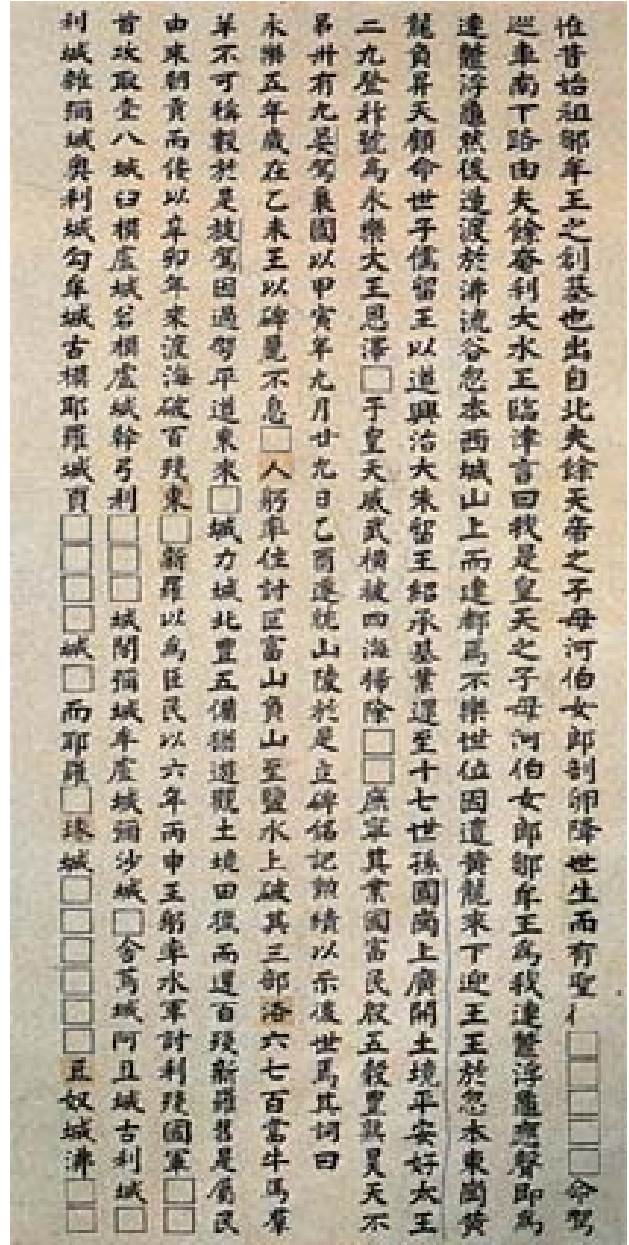 惟昔始祖鄒牟王之創基也出自北夫餘天帝之子母河伯女郎剖卵降世生而有聖亻□□□□□命駕
巡車南下路由夫餘奄利大水王臨津言曰我是皇天之子母河伯女郎鄒牟王爲我連鼈浮龜應聲即爲
連鼈浮龜然後造渡於沸流谷忽本西城山上而建都焉不樂世位因遣黃龍來下迎王王於忽本東崗黃
龍負昇天顧命世子儒留王以道興治大朱留王紹承基業遝至十七世孫國崗上廣開土境平安好太王
二九登祚號爲永樂太王恩澤□于皇天威武橫被四海掃除□□庶寧其業國富民殷五穀豊熟昊天不
弔卅有九晏駕棄國以甲寅年九月廿九日乙酉遷就山陵於是立碑銘記勳績以示後世焉其詞曰
永樂五年歲在乙未王以碑麗不息□人躬率住討叵富山負山至鹽水上破其三部洛六七百當牛馬羣
羊不可稱數於是旋駕因過平道東來□城力城北豊五備猶遊觀土境田獵而還百殘新羅舊是屬民
由來朝貢而倭以辛卯年來渡海破百殘東□新羅以爲臣民以六年丙申王躬率水軍討利殘國軍□□
首攻取壹八城臼模盧城各模盧城幹弓利□□□城閣彌城牟盧城彌沙城□舍蔦城阿旦城古利城□
利城雜彌城奧利城勾牟城古模耶羅城頁□□□□城□而耶羅□瑑城□□□□□□豆奴城沸□□